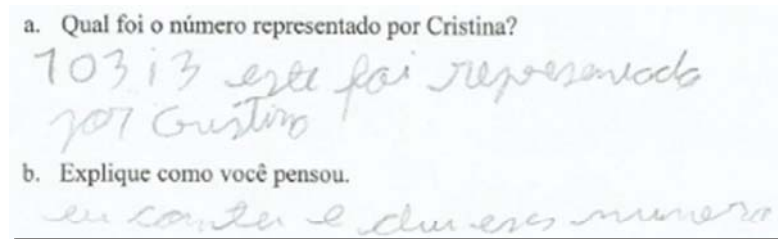 a. Qual foi o número representado por Cristina?
10313 este foi representado
por Cristina
b. Explique como você pensou.
eu contei e deu eses numero